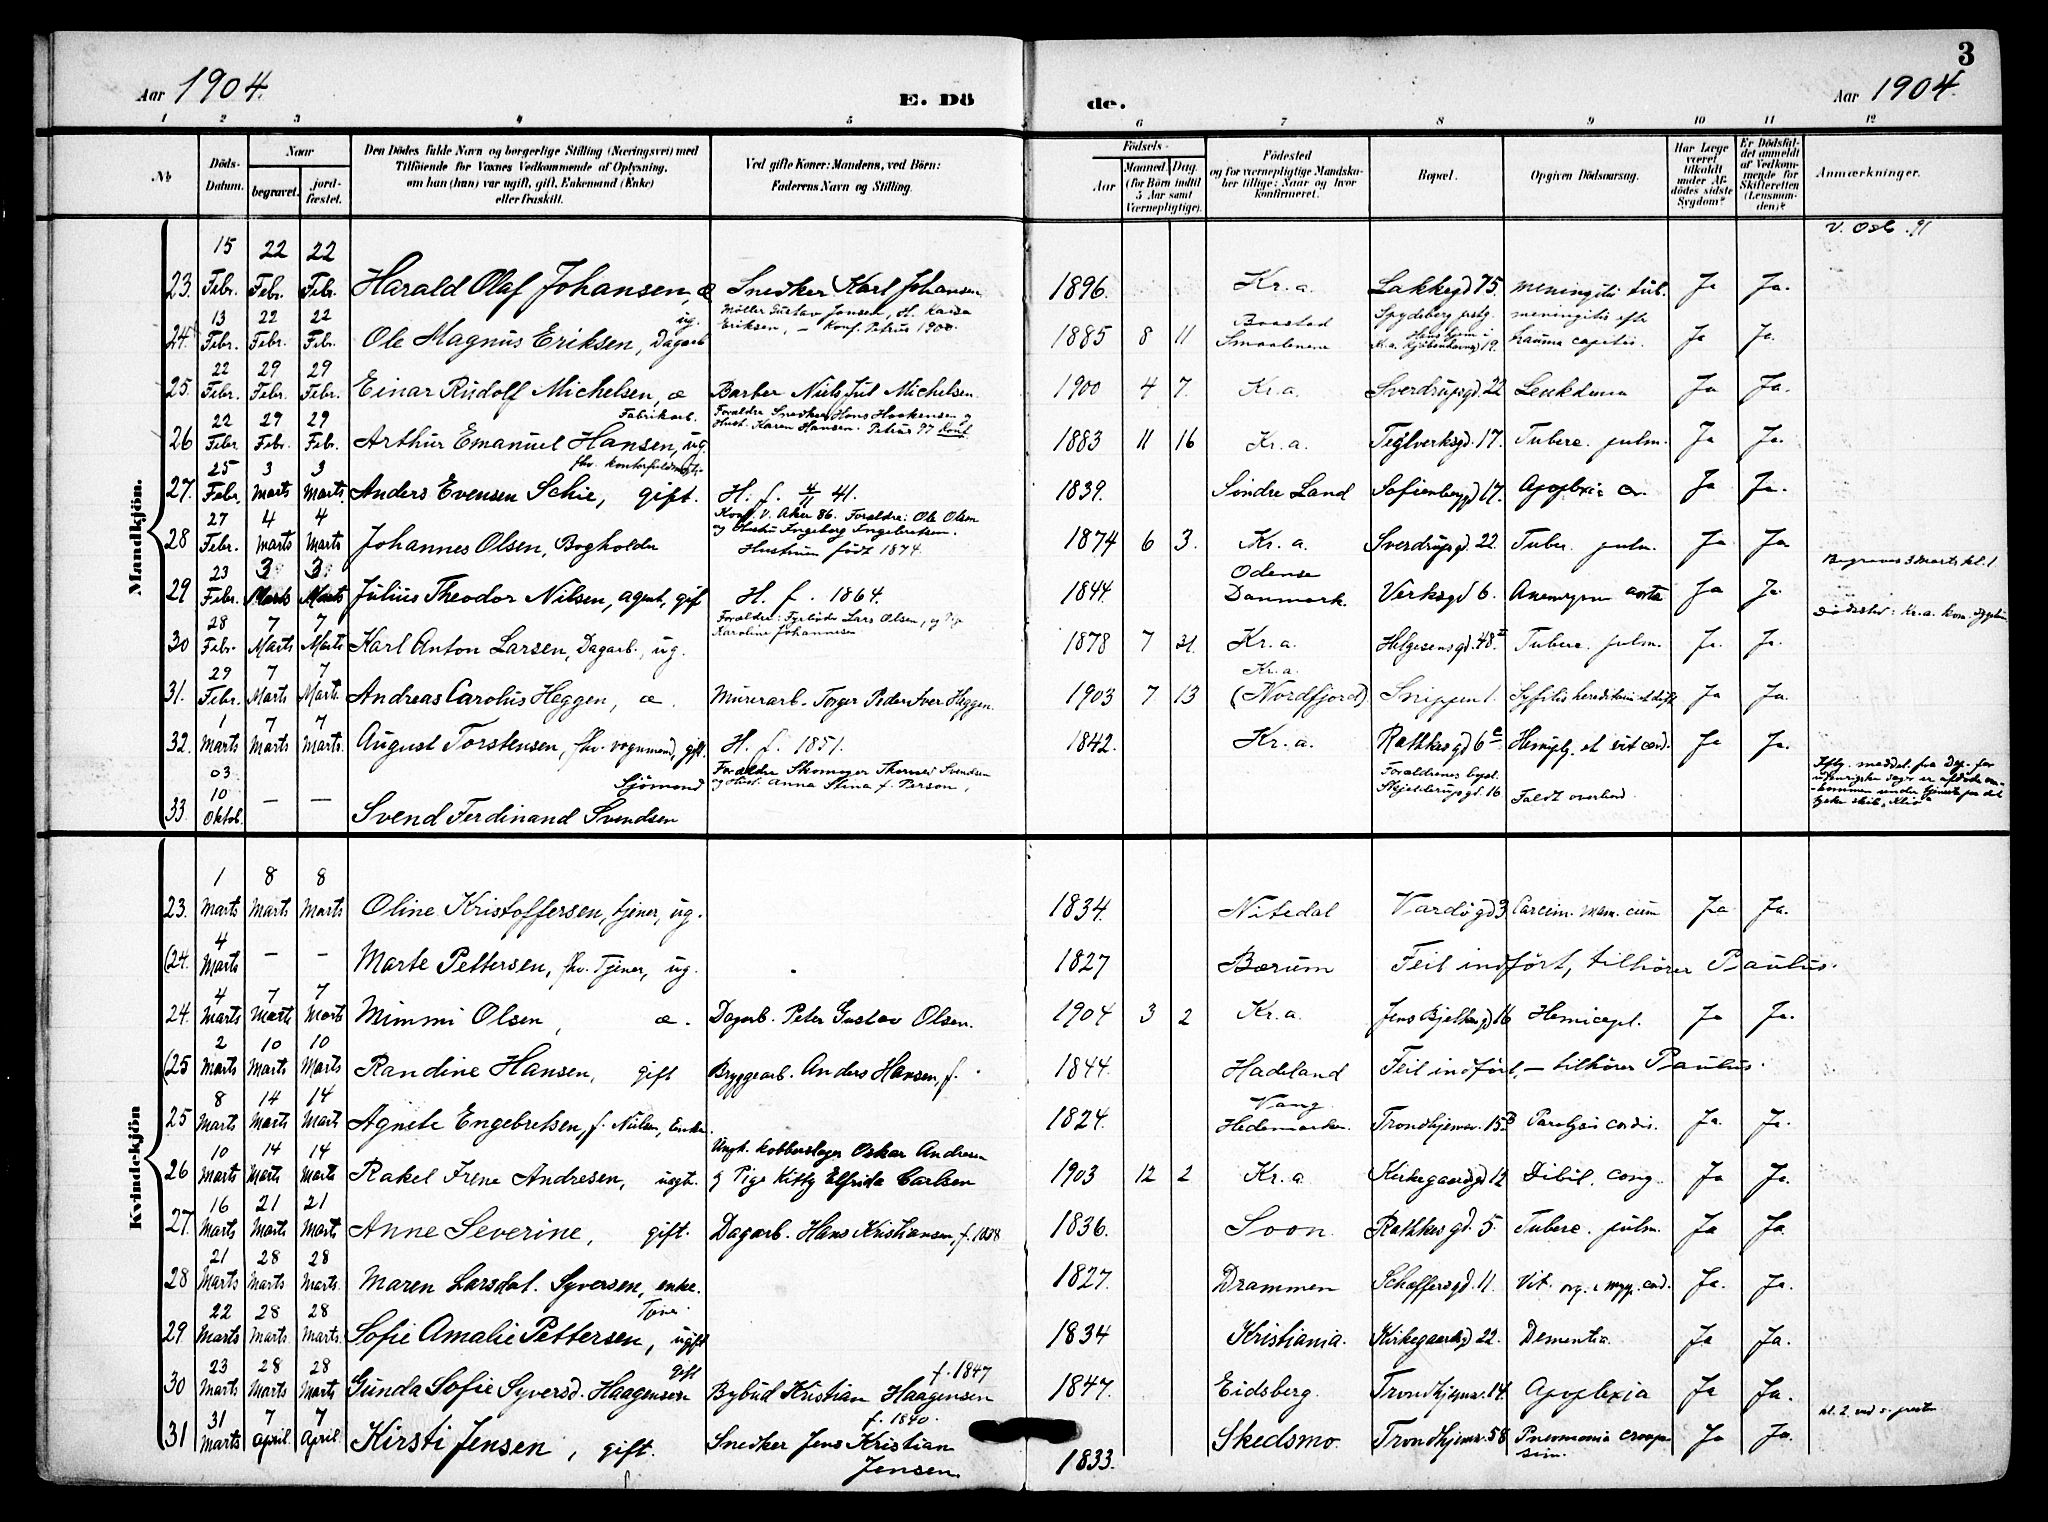 3
Aar 1904. E. Dö de. Aar 1904.
1 2 3 4 5 6 7 8 9 10 11 12
No
Döds-Datum.
Naar
begravet.
jord-fæstet.
Den Dödes fulde Navn og borgerlige Stilling (Næringsvei) med
Tilföiende for Voxnes Vedkommende af Oplysning,
om han (hun) var ugift, gift, Enkemand (Enke)
eller fraskilt.
Ved gifte Koner: Mandens, ved Börn:
Faderens Navn og Stilling.
Födsels-
Aar
Maaned. Dag.
(for Börn indtil
5 Aar samt
Værnepligtige).
Födested
og for værnepligtige Mandska-
ber tillige: Naar og hvor
konfirmeret.
Bopæl.
Opgiven Dödsaarsag.
Har Læge
været
tilkaldt
under Af-
dödes sidste
Sygdom?
Er Dödsfal-
det anmeldt
af Vedkom-
mende for
Skifteretten
(Lensman-
den)?
Anmærkninger.
Mandkjön.
23. 15 Febr. 22 Febr. 22 Febr. Harald Olaf Johansen, æ Snedker Karl Johansen 1896. Kr.a. Lakkegd 75. meningitis tub. Ja Ja.
24. 13 Febr. 22 Febr. 22 Febr. Ole Magnus Eriksen, Dagarb ug. Möller Gustav Jensen, H. Kaisa
Eriksen, - Konf. Petrus 1900. 1885 8 11 Smaalenene Spydeberg prstg. meningitis efter trauma capitis. Ja Ja.
25. 22 Febr. 29 Febr. 29 Febr. Einar Rudolf Michelsen, æ Barber Niels Jul Michelsen. 1900 4 7. Kr.a. Sverdrupsgd 22 Leukæmia Ja Ja.
26 22 Febr 29 Febr. 29 Febr. Arthur Emanuel Hansen, ug. Fabrikarb. Forældre Snedker Hans Haakensen og
Hust. Karen Hansen. Petrus 97 1883 11 16 Kr.a. Teglverksgd. 17. Tuberc. pulm. Ja Ja.
27. 25 Febr. 3 Marts 3 Marts. Anders Evensen Schie, gift. H. f. 4/11 41. 1839. Söndre Land Sofienberggd 17. Apoplexia Ja Ja.
28 27 Febr. 4 Marts 4 Marts Johannes Olsen, Bogholder Konf. V. Aker 86. Forældre: Ole Olsen
og Hustru Ingeborg Ingebretsen.
Hustruen född 1874. 1874 6 3. Kr.a. Sverdrupsgd. 22. Tuber. pulm. Ja Ja
29 23 Febr. 3 Marts 3 Marts Julius Theodor Nilsen, agent, gift H. f. 1864. 1844. Odense Danmark. Verksgd 6. Aneurysm aorta Ja Ja. Begraves 3 marts kl. 1
30 28 Febr. 7 Marts 7 Marts Karl Anton Larsen, Dagarb., ug. Forældre: Fyrböder Lars Olsen, og
Karoline Johannesen 1878 7 31. Kr.a. Helgesensgd. 48 Tuberc. pulm. Ja. Ja. Dödssted: Kr.a. kom.
31. 29 Febr. 7 Marts 7 Marts. Andreas Carolus Heggen, æ. Murerarb. Torger Peder Iver Heggen. 1903 7 13 Kr.a. (Nordfjord) Snippen 1. Syfilis hereditaria Ja Ja.
32. 1 Marts 7 Marts 7 Marts. August Torstensen, fhv. vognmand, gift. H. f. 1851. 1842. Kr.a. Rathkesgd 6 Hemipleg. et vit. cord. Ja Ja.
33. 03. 10 Oktob. — — Svend Ferdinand Svendsen Sjömand Forældre Skomager Svendsen
og Hust. Anna Stina f. Person. Forældrenes bopæl Skjelderupsgd. 16 Faldt overbord
Kvindekjön
23. 1 Marts 8 Marts 8 Marts Oline Kristoffersen, tjener, ug. 1834. Nitedal Vardögd 3. Carcin. mam. cum Ja Ja.
(24. 4 Marts — — Marte Pettersen, fhv. Tjener, ug. 1827 Bærum Feil indfört, tilhörer Paulus.
24. 4 Marts 7 Marts 7 Marts Mimmi Olsen, æ. Dagarb. Peter Gustav Olsen. 1904 3 2 Kr.a. Jens Bjelkesgd 16 Hemicepl. Ja Ja.
(25 2 Marts 10 Marts 10 Marts Randine Hansen, gift Bryggearb. Anders Hansen, f. 1844. Hadeland Feil indfört, — tilhörer Paulus.
25 8 Marts 14 Marts 14 Marts Agnete Engebretsen, f. Nilsen, Enke. 1824. Vang Hedemarken. Trondhjemsv. 15 Paralysis cordis. Ja. Ja.
26 10 Marts 14 Marts 14 Marts Rakel Irene Andresen, uegt. Ungk. kobberslager Oskar Andresen
og Pige Kitty Elfrida Carlsen 1903 12 2 Kr.a Kirkegaardsgd 12 Dibil. cong. Ja Ja.
27. 16 Marts 21 Marts 21 Marts Anne Severine, gift. Dagarb. Hans Kristiansen, f. 1838 1836. Soon. Rathkesgd. 5. Tuberc. pulm. Ja Ja
28 21 Marts 28 Marts 28 Marts. Maren Larsdat. Syversen, enke. 1827. Drammen Schæffersgd. 11. Vit. org. cord. Ja. Ja.
29 22 Marts 28 Marts. 28 Marts. Sofie Amalie Pettersen, ugift Tjener. 1834 Kristiania. Kirkegaardsgd 22. Dementia. Ja Ja.
30 23 Marts 28 Marts 28 Marts Gunda Sofie Syversd. Haagensen gift Bybud Kristian Haagensen f. 1847 1847. Eidsberg. Trondhjemsv. 14. Apoplexia Ja Ja.
31 31 Marts 7 April 7 April. Kirsti Jensen, gift. Snedker Jens Kristian Jensen. f. 1840. 1833. Skedsmo. Trondhjemsv. 58 Pneumonia Ja Ja. kl. 2. ved s. prester